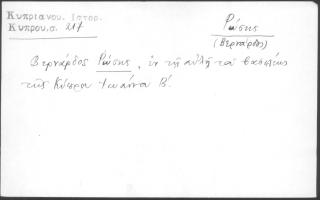 Κυπριανού. Ιστορ.
Κύπρου.σ. 217
Ρώσης
(Βερνάρδος)
Βερνάρδος Ρώσης, ἐν τῇ αὐλῇ τοῦ βασιλέως
τῆς Κύπρου Ἰωάννου Β΄.